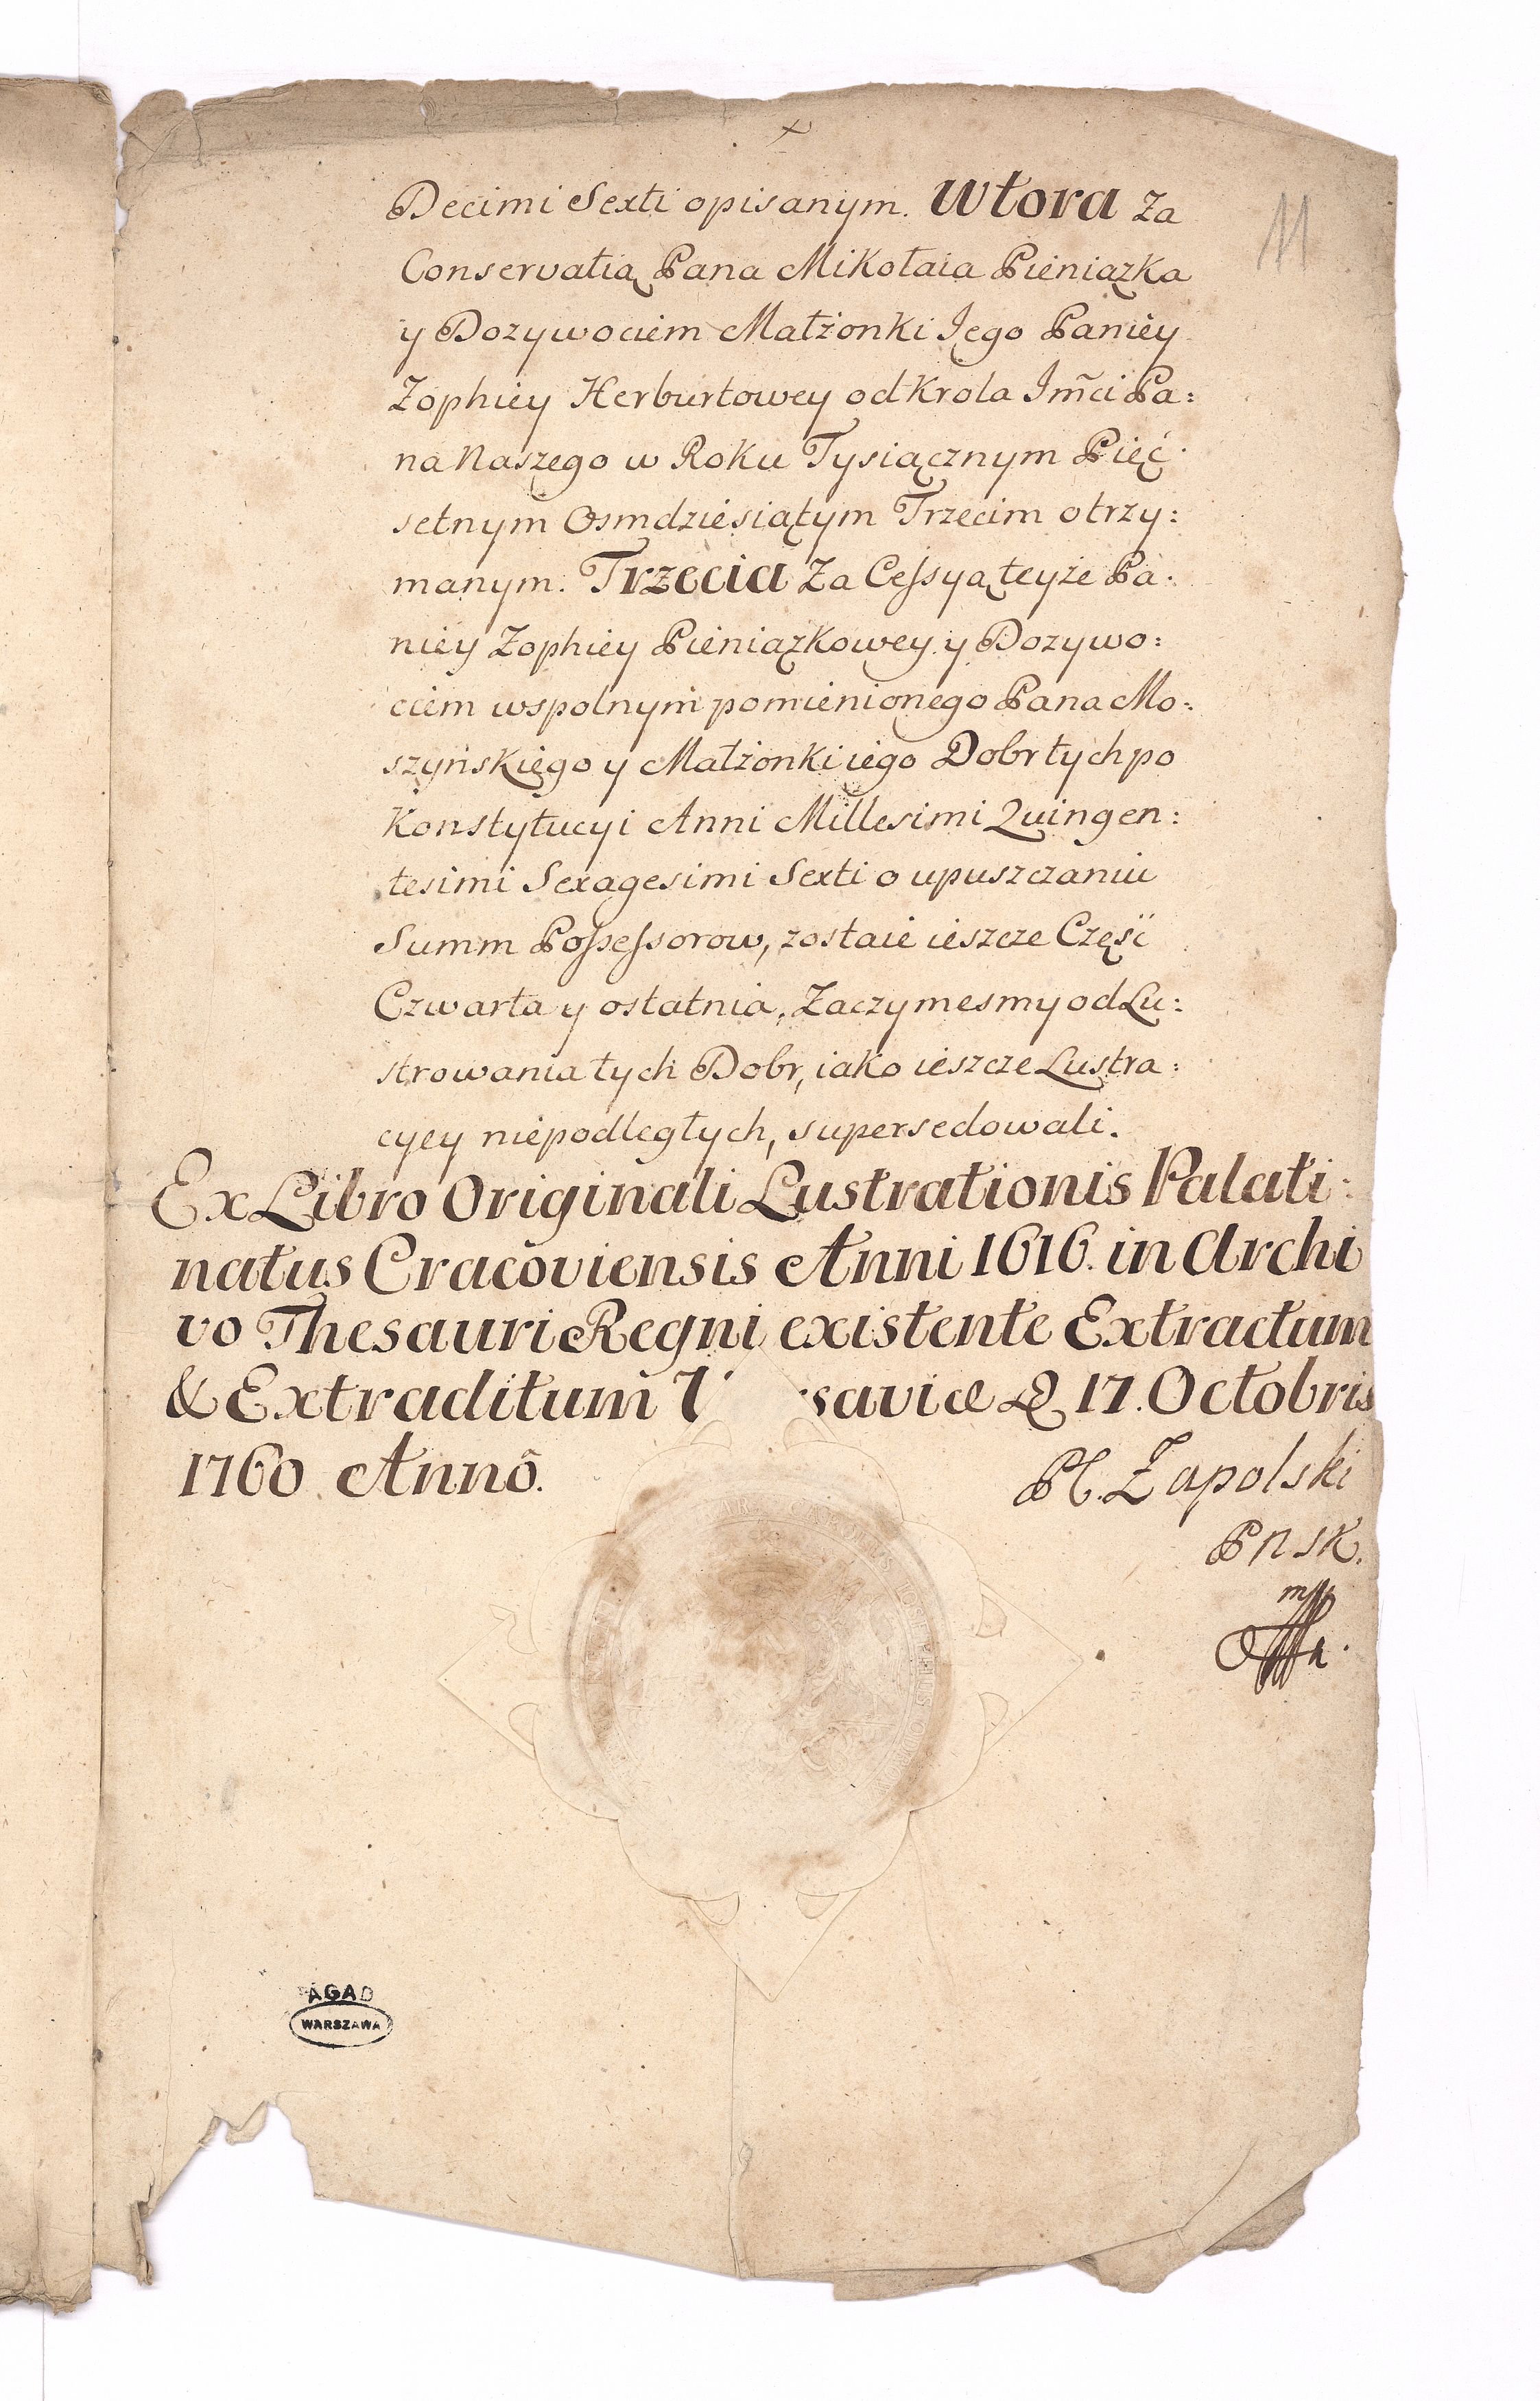 11
Decimi Sexti opisanym. Wtora za
Conservatią Pana Mikołaia Pieniązka
y Dozywociem Małżonki Jego Paniey
Zophiey Herburtowey od Krola Jm̃ci Pa:
na Naszego w Roku Tysiącznym Pięć
setnym Osmdziesiątym Trzecim otrzy:
manym. Trzecia Za Cessyą teyże Pa:
niey Zophiey Pieniązkowey y Dozywo:
ciem wspolnym pomienionego Pana Mo:
szyńskiego y Małżonki iego Dobr tych po
Konstytucyi Anni Millesimi Quingen:
tesimi Sexagesimi Sexti o upuszczaniu
Summ Possessorow, zostaie ieszcze Część
Czwarta y ostatnia, Zaczymesmy od Lu:
strowania tych Dobr, iako ieszcze Lustra:
cyey niepodległych, supersedowali.
Ex Libro Originali Lustrationis Palati:
natus Cracoviensis Anni 1616. in Archi
vo Thesauri Regni existente Extractum
& Extraditum V saviæ D 17. Octobris
1760 Annô.
Zapolski
PnSK.
mp
CAROLUS
AGAD
WARSZAWA